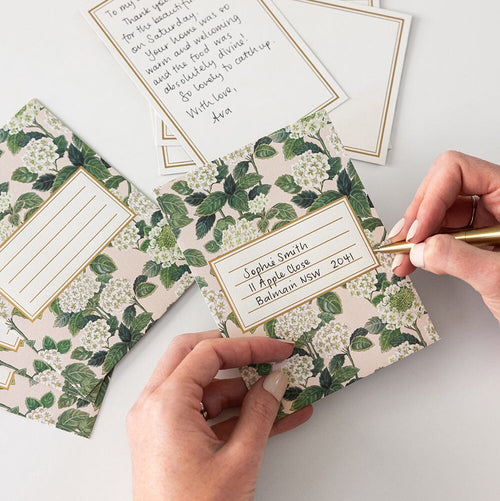 To my
Thank you
for the beautiful
on Saturday.
Your home was so
warm and welcoming
and the food was
absolutely divine!
So lovely to catch up.
With love,
Ava
Sophie Smith
11 Apple Close
Balmain NSW 2041